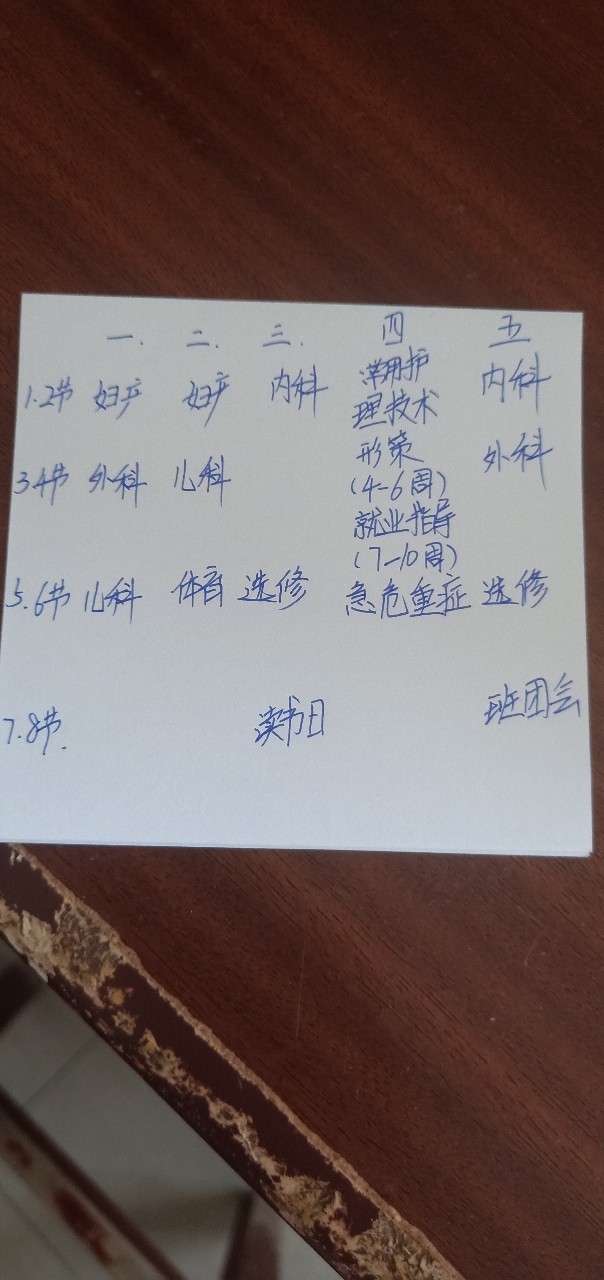 一. 二. 三. 四 五
1.2节 妇产 妇产 内科 常用护 内科
理技术
3.4节 外科 儿科 形策 外科
(4-6周)
就业指导
(7-10周)
5.6节 儿科 体育 选修 急危重症 选修
7.8节. 读书日 班团会